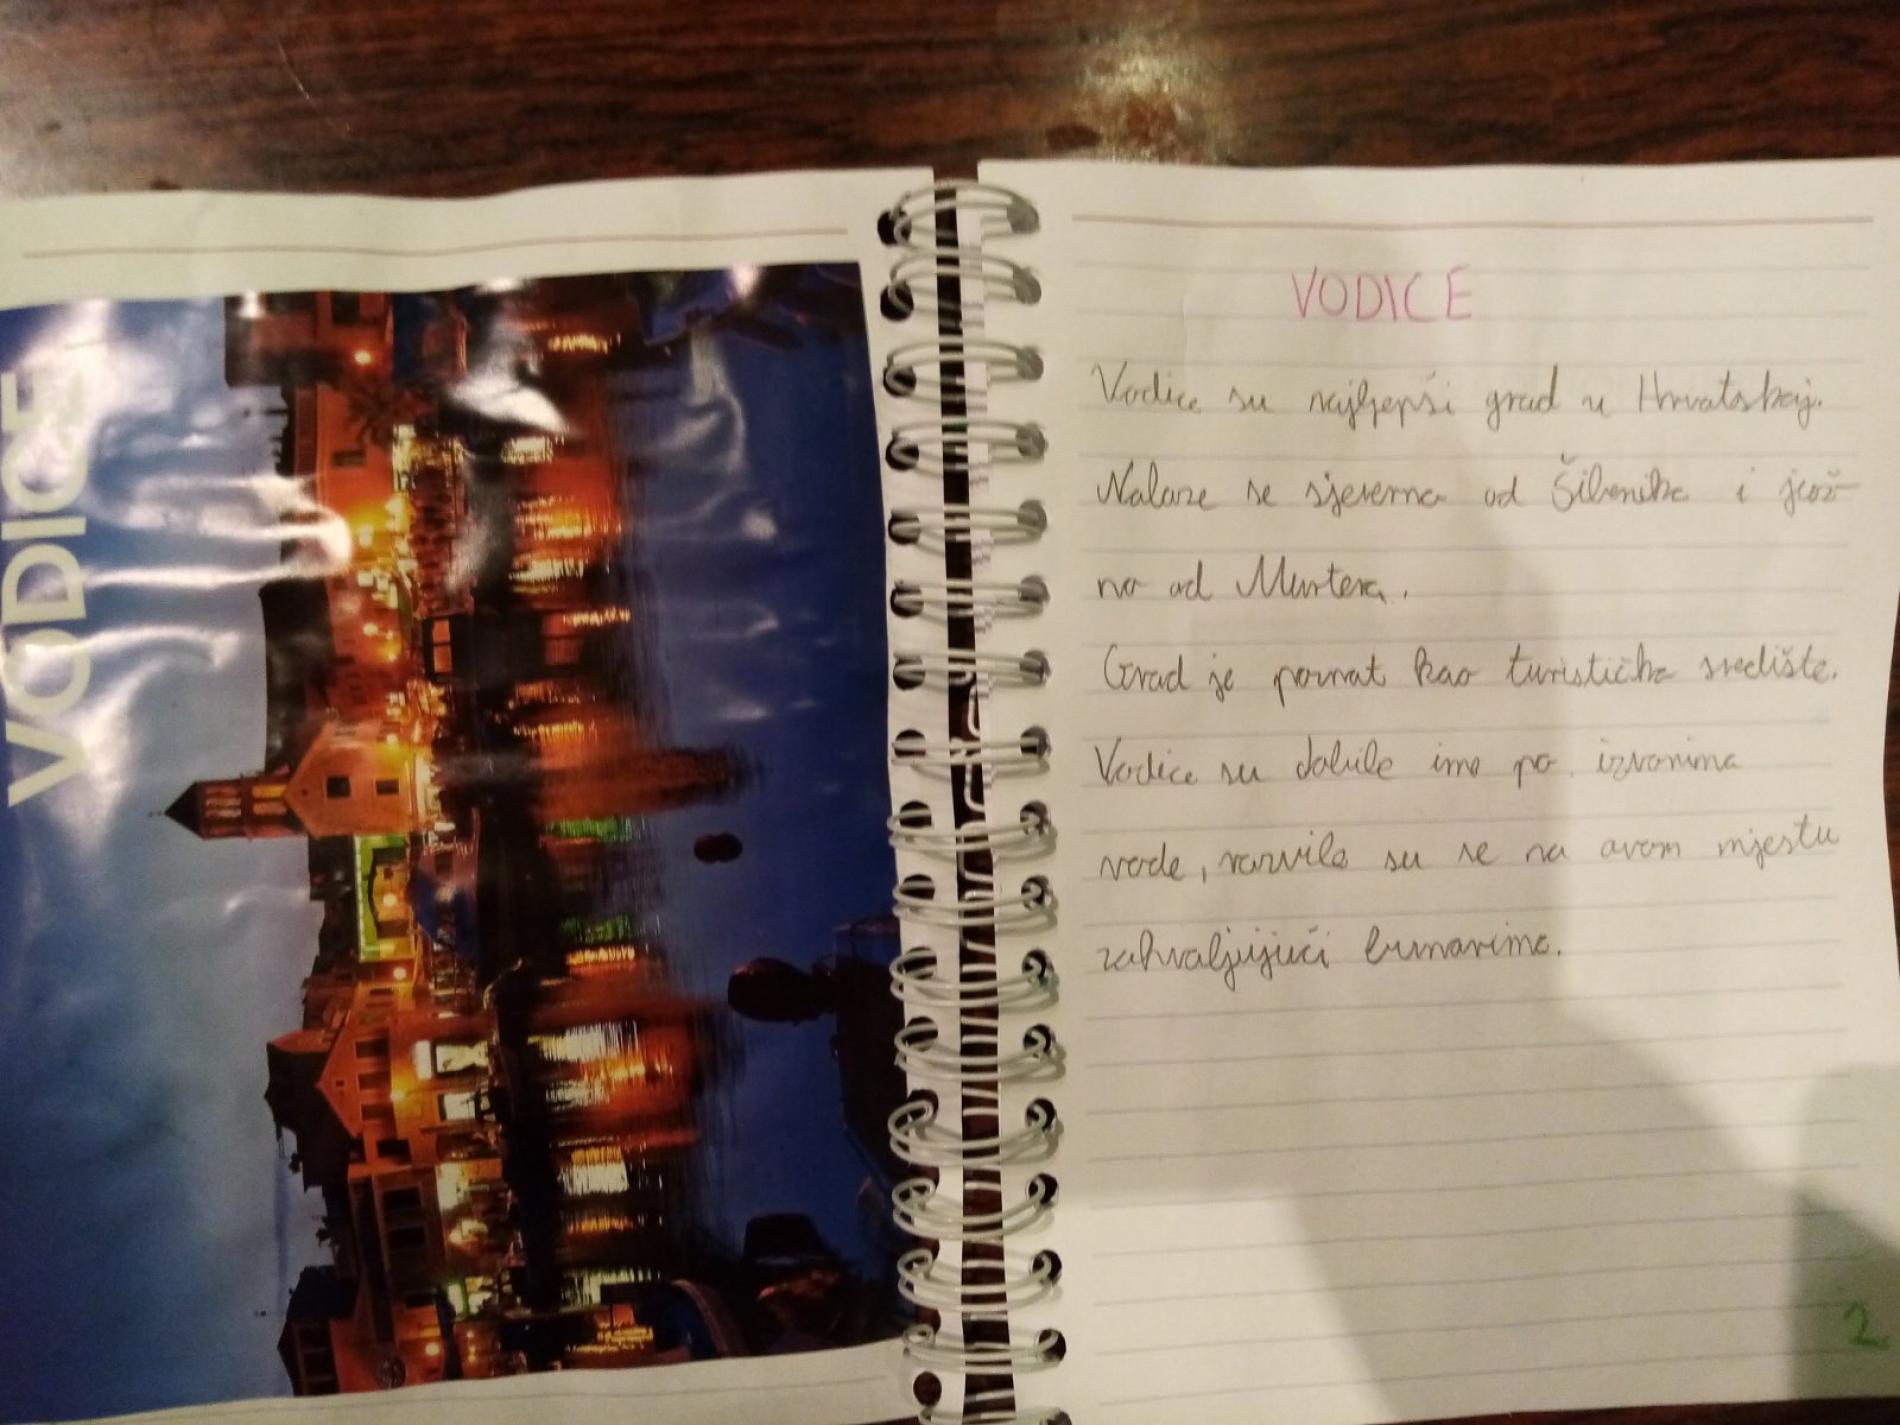 VODICE
VODICE
Vodice su najljepši grad u Hrvatskoj.
Nalaze se sjeverno od Šibenika i juž-
no od Murtera.
Grad je poznat kao turističko središte.
Vodice su dobile ime po izvorima
vode, razvile su se na ovom mjestu
zahvaljujući bunarima.
2.